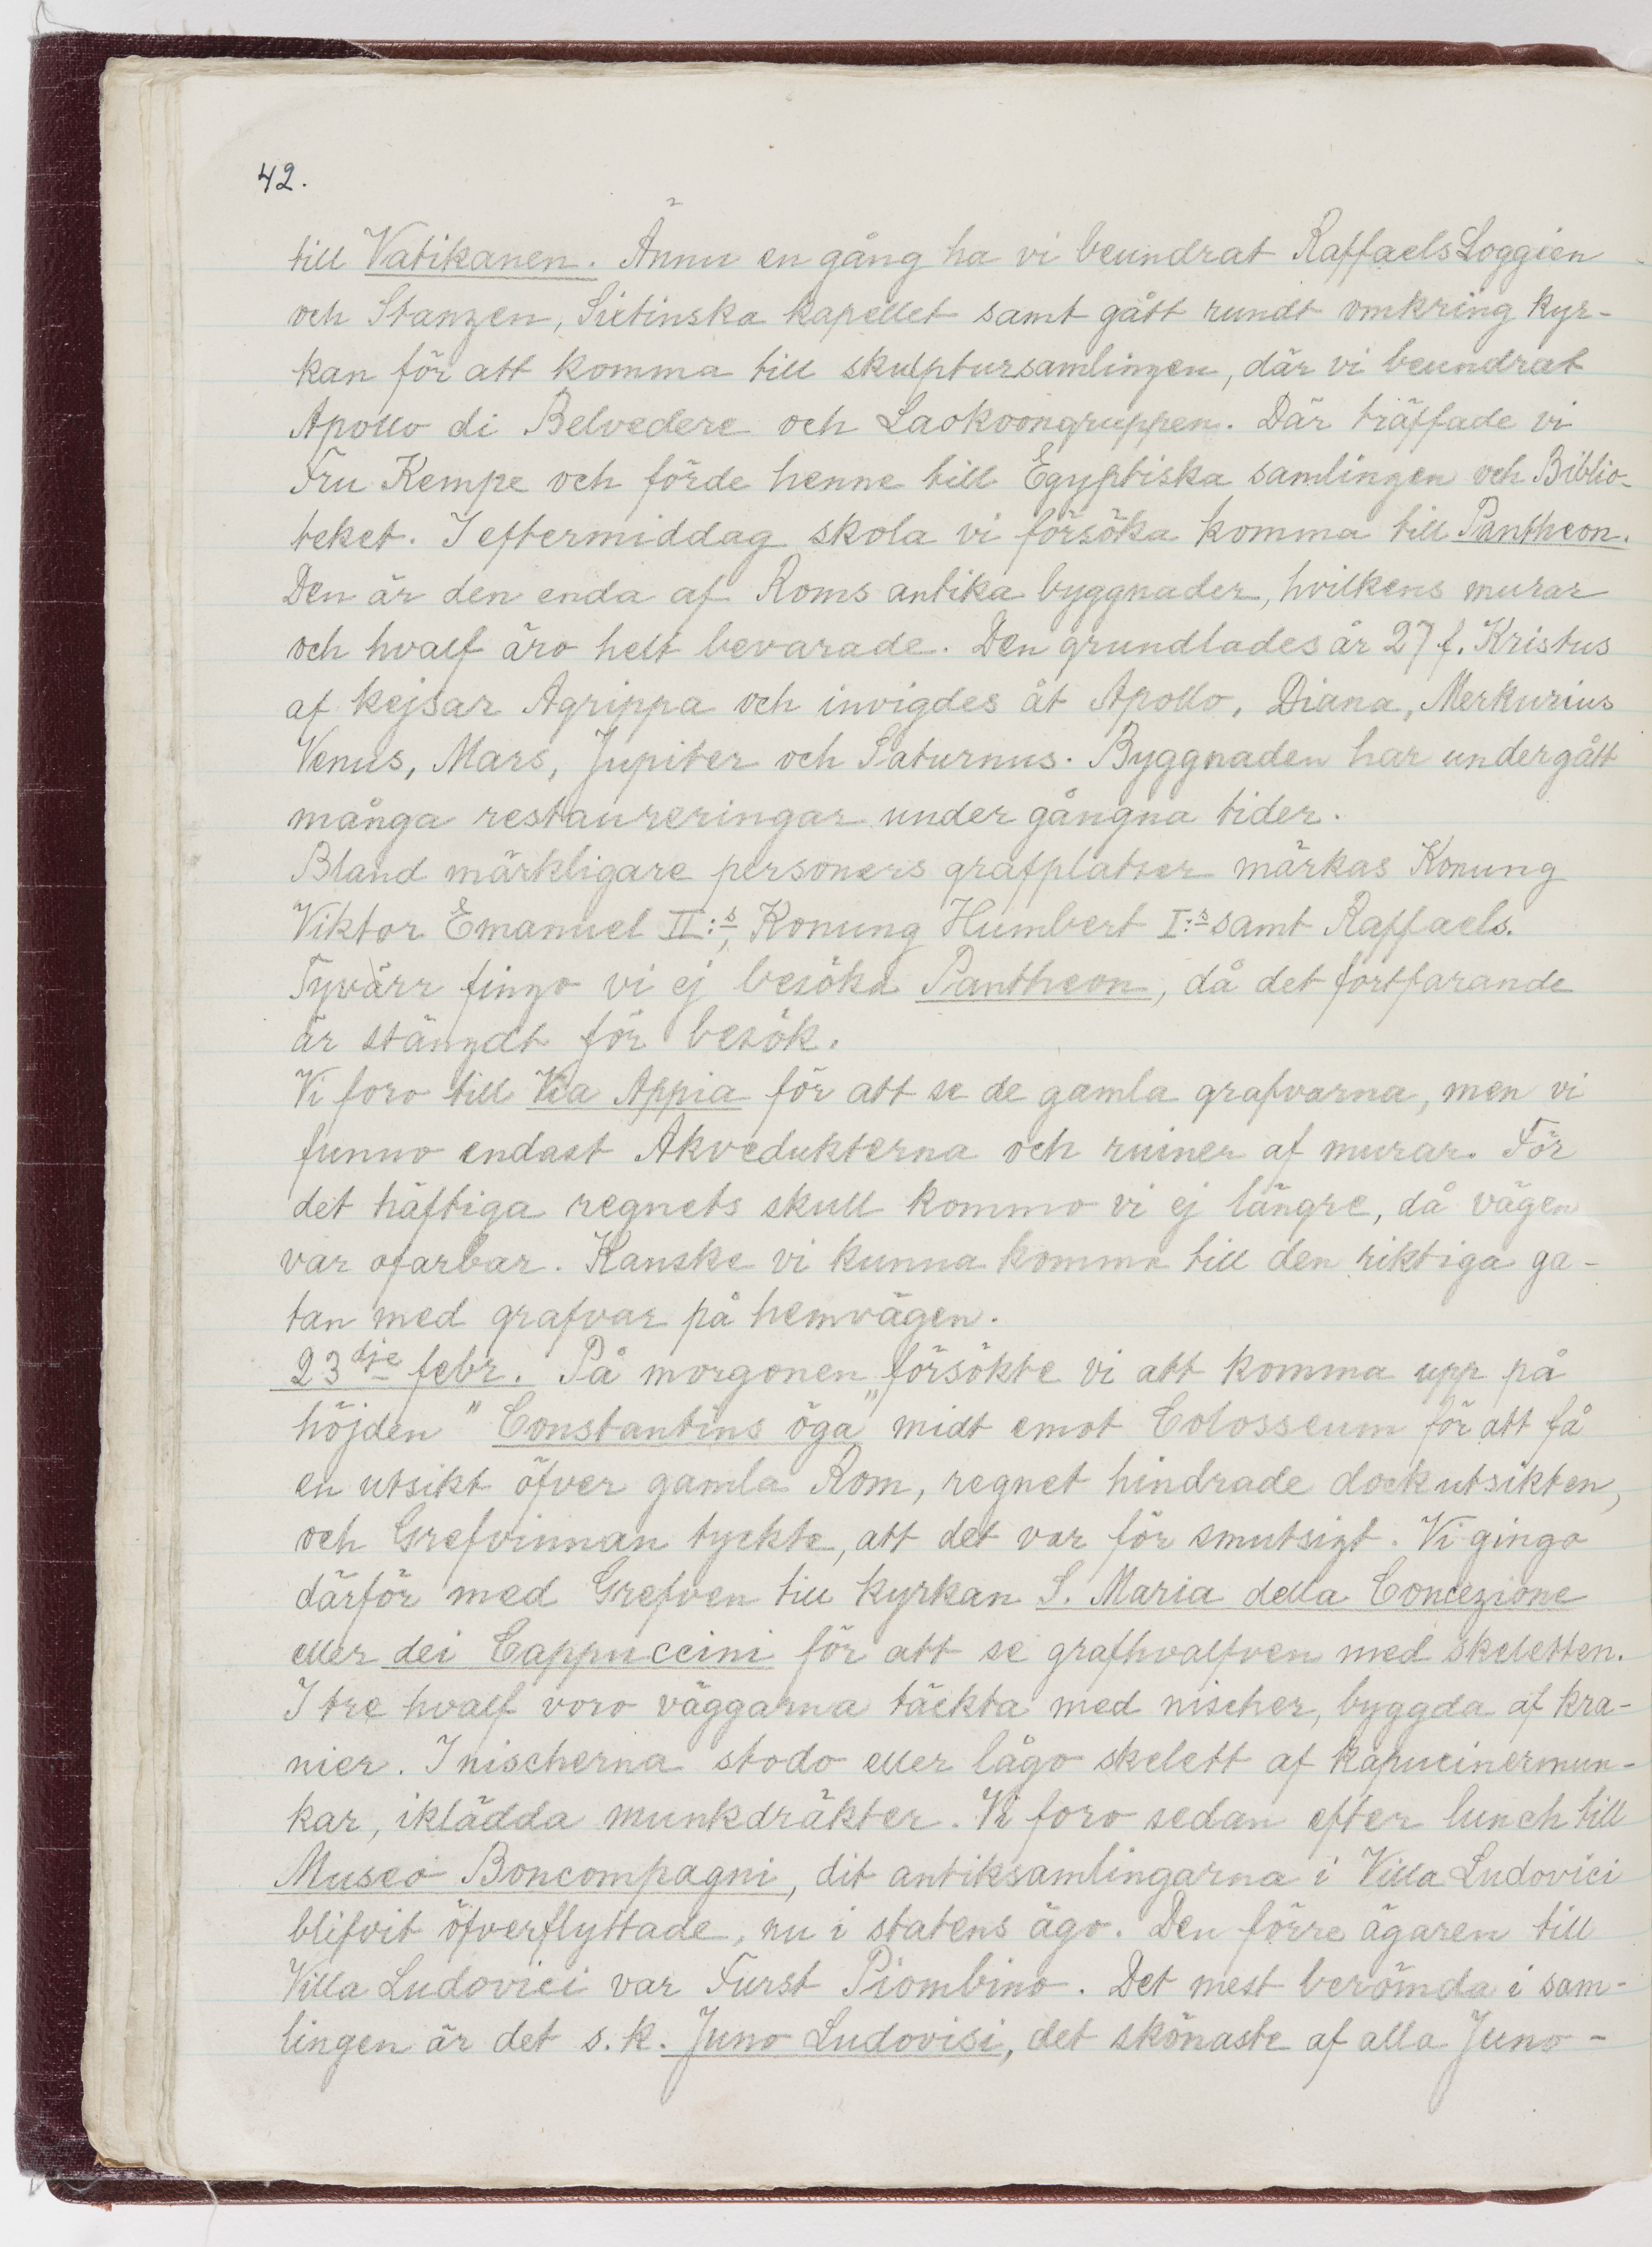 42.
till Vatikanen. Ännu en gång ha vi beundrat Raffaels Loggien
och Stanzen, Sixtinska kapellet samt gått rundt omkring kyr-
kan för att komma till skulptursamlingen, där vi beundrat
Apollo di Belvedere och Laokoongruppen. Där träffade vi
Fru Kempe och förde henne till Egyptiska samlingen och Biblio-
teket. I eftermiddag skola vi försöka komma till Pantheon.
Den är den enda af Roms antika byggnader, hvilkens murar
och hvalf äro helt bevarade. Den grundlades år 27 f. Kristus
af kejsar Agrippa och invigdes åt Apollo, Diana, Merkurius
Venus, Mars, Jupiter och Saturnus. Byggnaden har undergått
många restaureringar under gångna tider.
Bland märkligare personers grafplatser märkas Konung
Viktor Emanuel II:s, Konung Humbert I:s samt Raffaels.
Tyvärr fingo vi ej besöka Pantheon, då det fortfarande
är stängdt för besök.
Vi foro till Via Appia för att se de gamla grafvarna, men vi
funno endast Akvedukterna och ruiner af murar. För
det häftiga regnets skull kommo vi ej längre, då vägen
var ofarbar. Kanske vi kunna komma till den riktiga ga-
tan med grafvar på hemvägen.
23dje febr. På morgonen försökte vi att komma upp på
höjden "Constantins öga" midt emot Colosseum för att få
en utsikt öfver gamla Rom, regnet hindrade dock utsikten,
och Grefvinnan tyckte, att det var för smutsigt. Vi gingo
därför med Grefven till kyrkan S. Maria della Concezione
eller dei Cappuccini för att se grafhvalfven med skeletten.
I tre hvalf voro väggarna täckta med nischer, byggda af kra-
nier. I nischerna stodo eller lågo skelett af kapucinermun-
kar, iklädda munkdräkter. Vi foro sedan efter lunch till
Museo Boncompagni, dit antiksamlingarna i Villa Ludovici
blifvit öfverflyttade, nu i statens ägo. Den förre ägaren till
Villa Ludovici var Furst Piombino. Det mest berömda i sam-
lingen är det s.k. Juno Ludovisi, det skönaste af alla Juno-